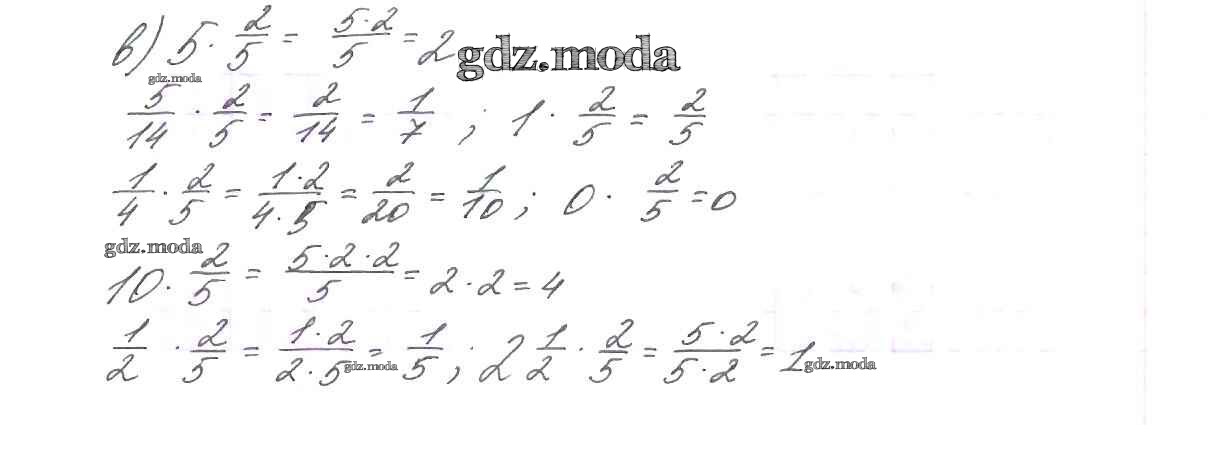 в) 5 · 2/5 = (5·2)/5 = 2 gdz.moda
gdz.moda
5/14 · 2/5 = 2/14 = 1/7 ; 1 · 2/5 = 2/5
1/4 · 2/5 = (1·2)/(4·5) = 2/20 = 1/10 ; 0 · 2/5 = 0
gdz.moda
10 · 2/5 = (5·2·2)/5 = 2·2 = 4
1/2 · 2/5 = (1·2)/(2·5) = 1/5 ; 2 1/2 · 2/5 = (5·2)/(5·2) = 1
gdz.moda gdz.moda